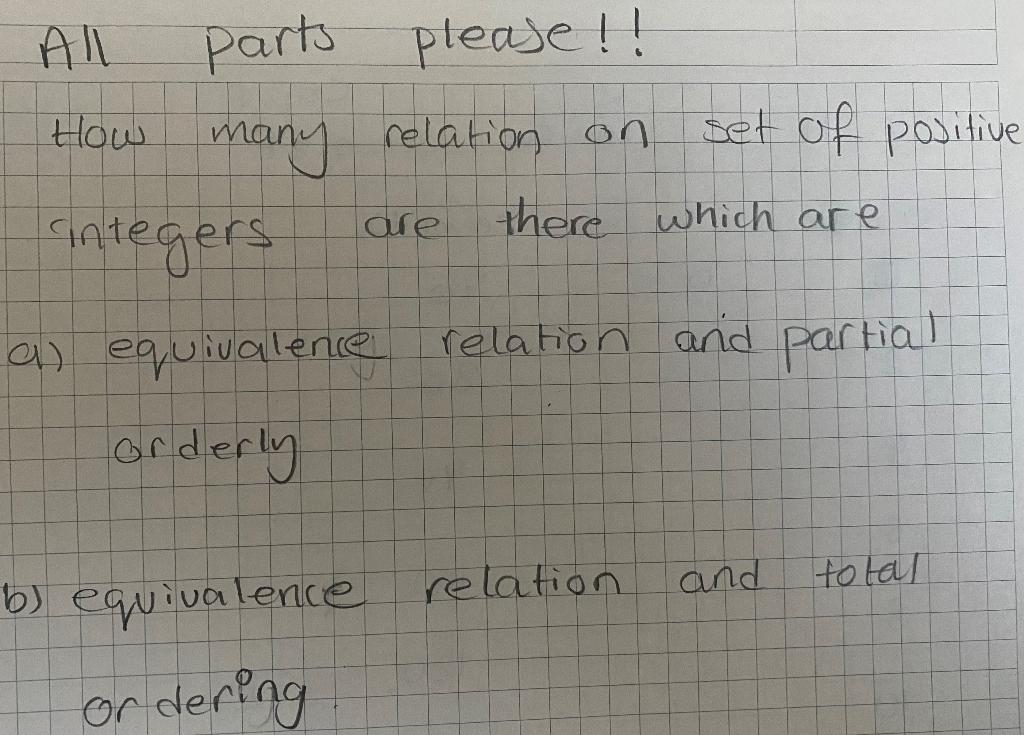 All parts please!!
How many relation on set of positive
integers are there which are
a) equivalence relation and partial
orderly
b) equivalence relation and total
ordering